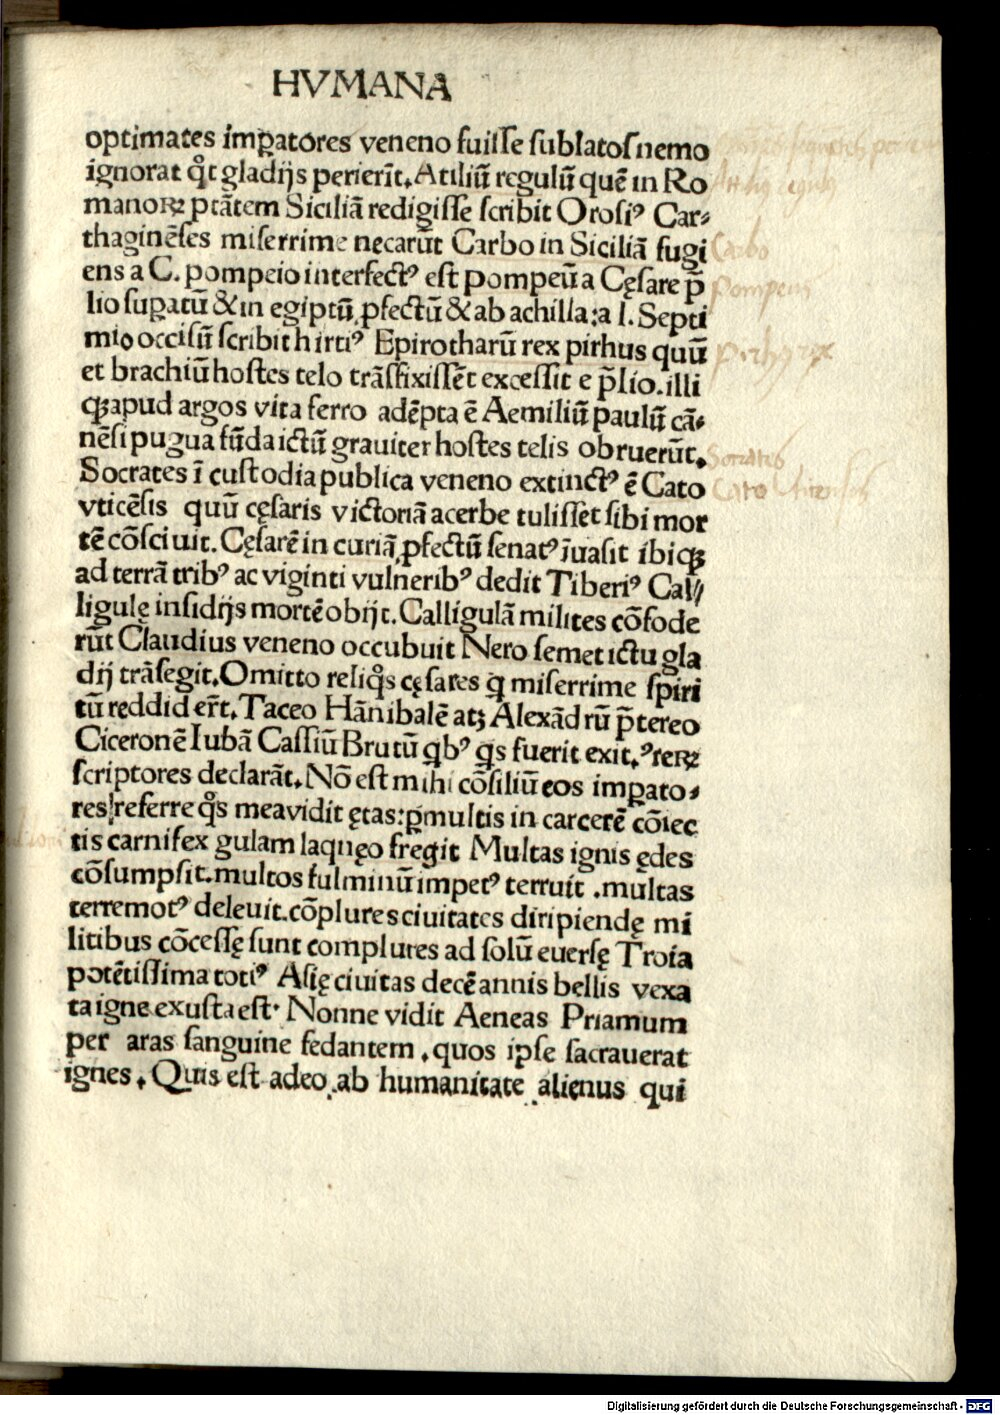 HVMANA
optimates imꝑatores veneno fuiſſe ſublatoſ nemo
ignorat qͦt gladijs perierīt. Atiliū regulū quē in Ro
manoꝝ ptātem Siciliā redigiſſe ſcribit Oroſiꝰ Car⸗
thaginēſes miſerrime necarūt Carbo in Siciliā fugi
ens a C. pompeio interfectꝰ eſt pompeū a Cęſare p̄
lio ſuꝑatū & in egiptū ꝓfectū & ab achilla: a l. Septi
mio occiſū ſcribit hirtiꝰ Epirotharū rex pirhus quū
et brachiū hoſtes telo trāſfixiſſēt exceſſit e p̄lio. illi
qꝫ apud argos vita ferro adēpta ē Aemiliū paulū cā⸗
nēſi pugua fūda ictū grauiter hoſtes telis obruerūt.
Socrates ī cuſtodia publica veneno extinctꝰ ē Cato
vticēſis quū cęſaris victoriā acerbe tuliſſet ſibi mor
tē cōſciuit. Cęſarē in curiā ꝓfectū ſenatꝰ īuaſit ibiqꝫ
ad terrā tribꝰ ac viginti vulneribꝰ dedit Tiberiꝰ Cal//
ligulę inſidijs mortē obijt. Calligulā milites cōfode
rūt Claudius veneno occubuit Nero ſemet ictu gla
dij trāſegit. Omitto reliqͦs cęſares ꝗ miſerrime ſpiri
tū reddider̄t. Taceo Hānibalē atꝫ Alexādrū p̄tereo
Ciceronē Iubā Caſſiū Brutū ꝗbꝰ ꝗs fuerit exit.ꝰ reꝝ
ſcriptores declarāt. Nō eſt mihi cōſiliū eos imꝑato⸗
res referre qͦs mea vidit ętas: ꝑmultis in carcerē cōiec
tis carnifex gulam laqnęo fregit Multas ignis ędes
cōſumpſit. multos fulminū impetꝰ terruit . multas
terremotꝰ deleuit. cōplures ciuitates diripiendę mi
litibus cōceſſę ſunt complures ad ſolū euerſę Troia
potētiſſima totiꝰ Aſię ciuitas decē annis bellis vexa
ta igne exuſta eſt. Nonne vidit Aeneas Priamum
per aras ſanguine fedantem . quos ipſe ſacrauerat
ignes . Quis eſt adeo ab humanitate alienus qui
Carbo
pompeius
pirhꝰ rex
Socrates
Cato Uticensis
Digitalisierung gefördert durch die Deutsche Forschungsgemeinschaft - DFG